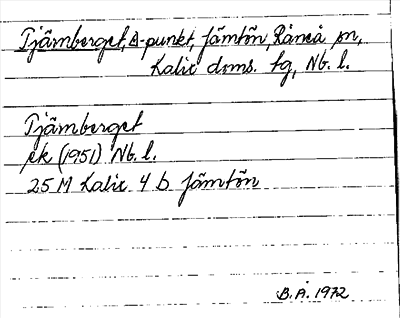 Tjämberget, Δ-punkt, Jämtön, Råneå sn,
Kalix doms. tg, Nb. l.
Tjämberget
ek (1951) Nb. l.
25 M Kalix 4 b Jämtön
B. Å. 1972